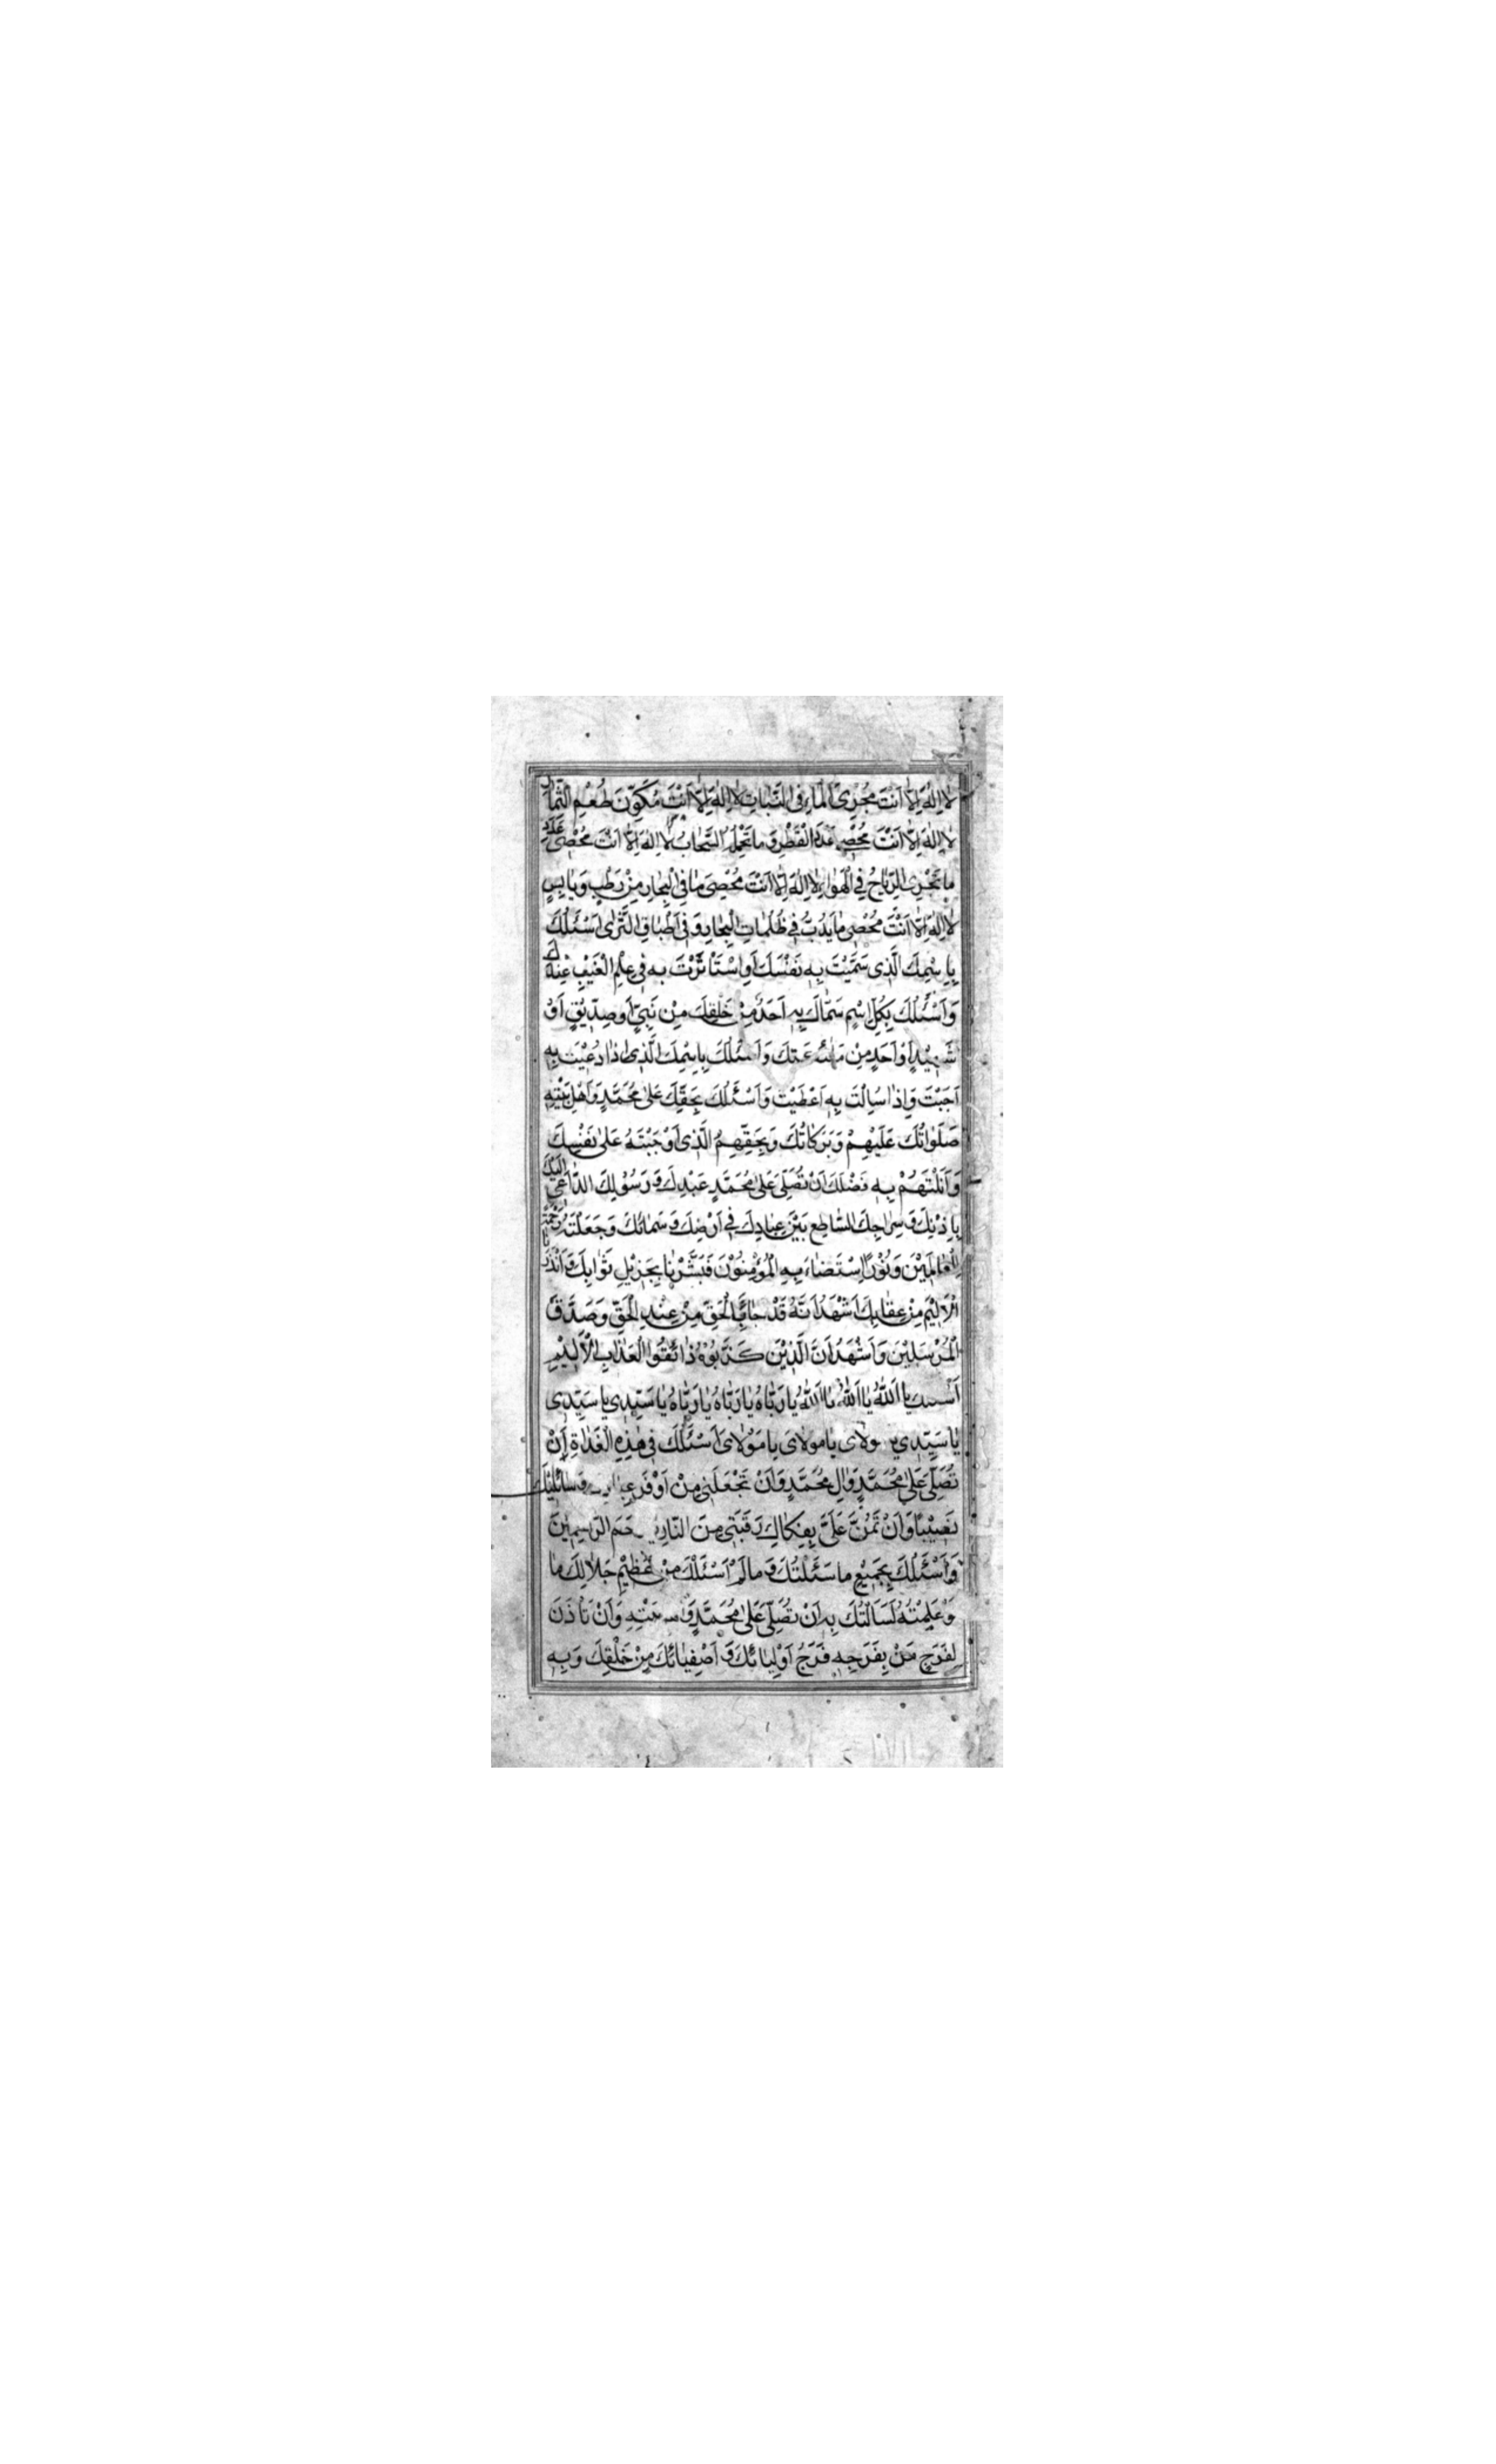 لا اِلٰهَ اِلّا اَنْتَ مُجْرِیَ الْمٰاءِ فِی النَّبٰاتِ لا اِلٰهَ اِلّا اَنْتَ مُكَوِّنَ طُعْمِ الثِّمٰارِ
لا اِلٰهَ اِلّا اَنْتَ مُحْصِیَ عَدَدَ الْقَطْرِ وَ ما تَحْمِلُهُ السَّحٰابُ لا اِلٰهَ اِلّا اَنْتَ مُحْصِیَ عَدَدِ
ما تَجْرِی بِهِ الرِّیٰاحُ فِی الْهَوٰاءِ لا اِلٰهَ اِلّا اَنْتَ مُحْصِیَ مٰا فِی الْبِحٰارِ مِنْ رَطْبٍ وَ یٰابِسٍ
لا اِلٰهَ اِلّا اَنْتَ مُحْصِیَ مٰا یَدُبُّ فِی ظُلُمٰاتِ الْبِحٰارِ وَ فِی اَطْبٰاقِ الثَّرٰی اَسْئَلُكَ
بِاِسْمِكَ الَّذِی سَمَّیْتَ بِهِ نَفْسَكَ اَوِ اسْتَأْثَرْتَ بِهِ فِی عِلْمِ الْغَیْبِ عِنْدَكَ
وَ اَسْئَلُكَ بِكُلِّ اسْمٍ سَمّٰاكَ بِهِ اَحَدٌ مِنْ خَلْقِكَ مِنْ نَبِیٍّ اَوْ صِدِّیْقٍ اَوْ
شَهِیْدٍ اَوْ اَحَدٍ مِنْ مَلٰئِكَتِكَ وَ اَسْئَلُكَ بِاِسْمِكَ الَّذِی اِذٰا دُعِیْتَ بِهِ
اَجَبْتَ وَ اِذٰا سُئِلْتَ بِهِ اَعْطَیْتَ وَ اَسْئَلُكَ بِحَقِّكَ عَلٰی مُحَمَّدٍ وَ اَهْلِ بَیْتِهِ
صَلَوٰاتُكَ عَلَیْهِمْ وَ بَرَكٰاتُكَ وَ بِحَقِّهِمُ الَّذِی اَوْجَبْتَهُ عَلٰی نَفْسِكَ
وَ اَنَلْتَهُمْ بِهِ فَضْلَكَ اَنْ تُصَلِّیَ عَلٰی مُحَمَّدٍ عَبْدِكَ وَ رَسُوْلِكَ الدّٰاعِی اِلَیْكَ
بِاِذْنِكَ وَ سِرٰاجِكَ السّٰاطِعِ بَیْنَ عِبٰادِكَ فِی اَرْضِكَ وَ سَمٰائِكَ وَ جَعَلْتَهُ رَحْمَةً
لِلْعٰالَمِیْنَ وَ نُوْرًا اسْتَضٰاءَ بِهِ الْمُؤْمِنُوْنَ فَبَشَّرْنٰا بِجَزِیْلِ ثَوٰابِكَ وَ اَنْذَرَنَا
الْاَلِیْمَ مِنْ عِقٰابِكَ اَشْهَدُ اَنَّهُ قَدْ جٰاءَ بِالْحَقِّ مِنْ عِنْدِ الْحَقِّ وَ صَدَّقَ
الْمُرْسَلِیْنَ وَ اَشْهَدُ اَنَّ الَّذِیْنَ كَذَّبُوْهُ ذٰائِقُوا الْعَذٰابِ الْاَلِیْمِ
اَسْئَلُكَ یا اَللّٰهُ یٰا اَللّٰهُ یٰا اَللّٰهُ یٰا رَبّٰاهُ یٰا رَبّٰاهُ یٰا رَبّٰاهُ یٰا سَیِّدِی یا سَیِّدِی
یٰا سَیِّدِی یا مَوْلٰایَ یا مَوْلٰایَ یا مَوْلٰایَ اَسْئَلُكَ فِی هٰذِهِ الْغَدٰاةِ اَنْ
تُصَلِّیَ عَلٰی مُحَمَّدٍ وَ اٰلِ مُحَمَّدٍ وَ اَنْ تَجْعَلَنِی مِنْ اَوْفَرِ عِبٰادِكَ وَ سٰائِلِیْكَ
نَصِیْبًا وَ اَنْ تَمُنَّ عَلَیَّ بِفِكٰاكِ رَقَبَتِی مِنَ النّٰارِ یا اَرْحَمَ الرّٰحِمِیْنَ
وَ اَسْئَلُكَ بِجَمِیْعِ ما سَئَلْتُكَ وَ ما لَمْ اَسْئَلْكَ مِنْ عَظِیْمِ جَلٰالِكَ مٰا
لَوْ عَلِمْتُهُ لَسَاَلْتُكَ بِهِ اَنْ تُصَلِّیَ عَلٰی مُحَمَّدٍ وَ اَهْلِ بَیْتِهِ وَ اَنْ تَاْذَنَ
لِفَرَجِ مَنْ بِفَرَجِهِ فَرَجُ اَوْلِیٰائِكَ وَ اَصْفِیٰائِكَ مِنْ خَلْقِكَ وَ بِهِ